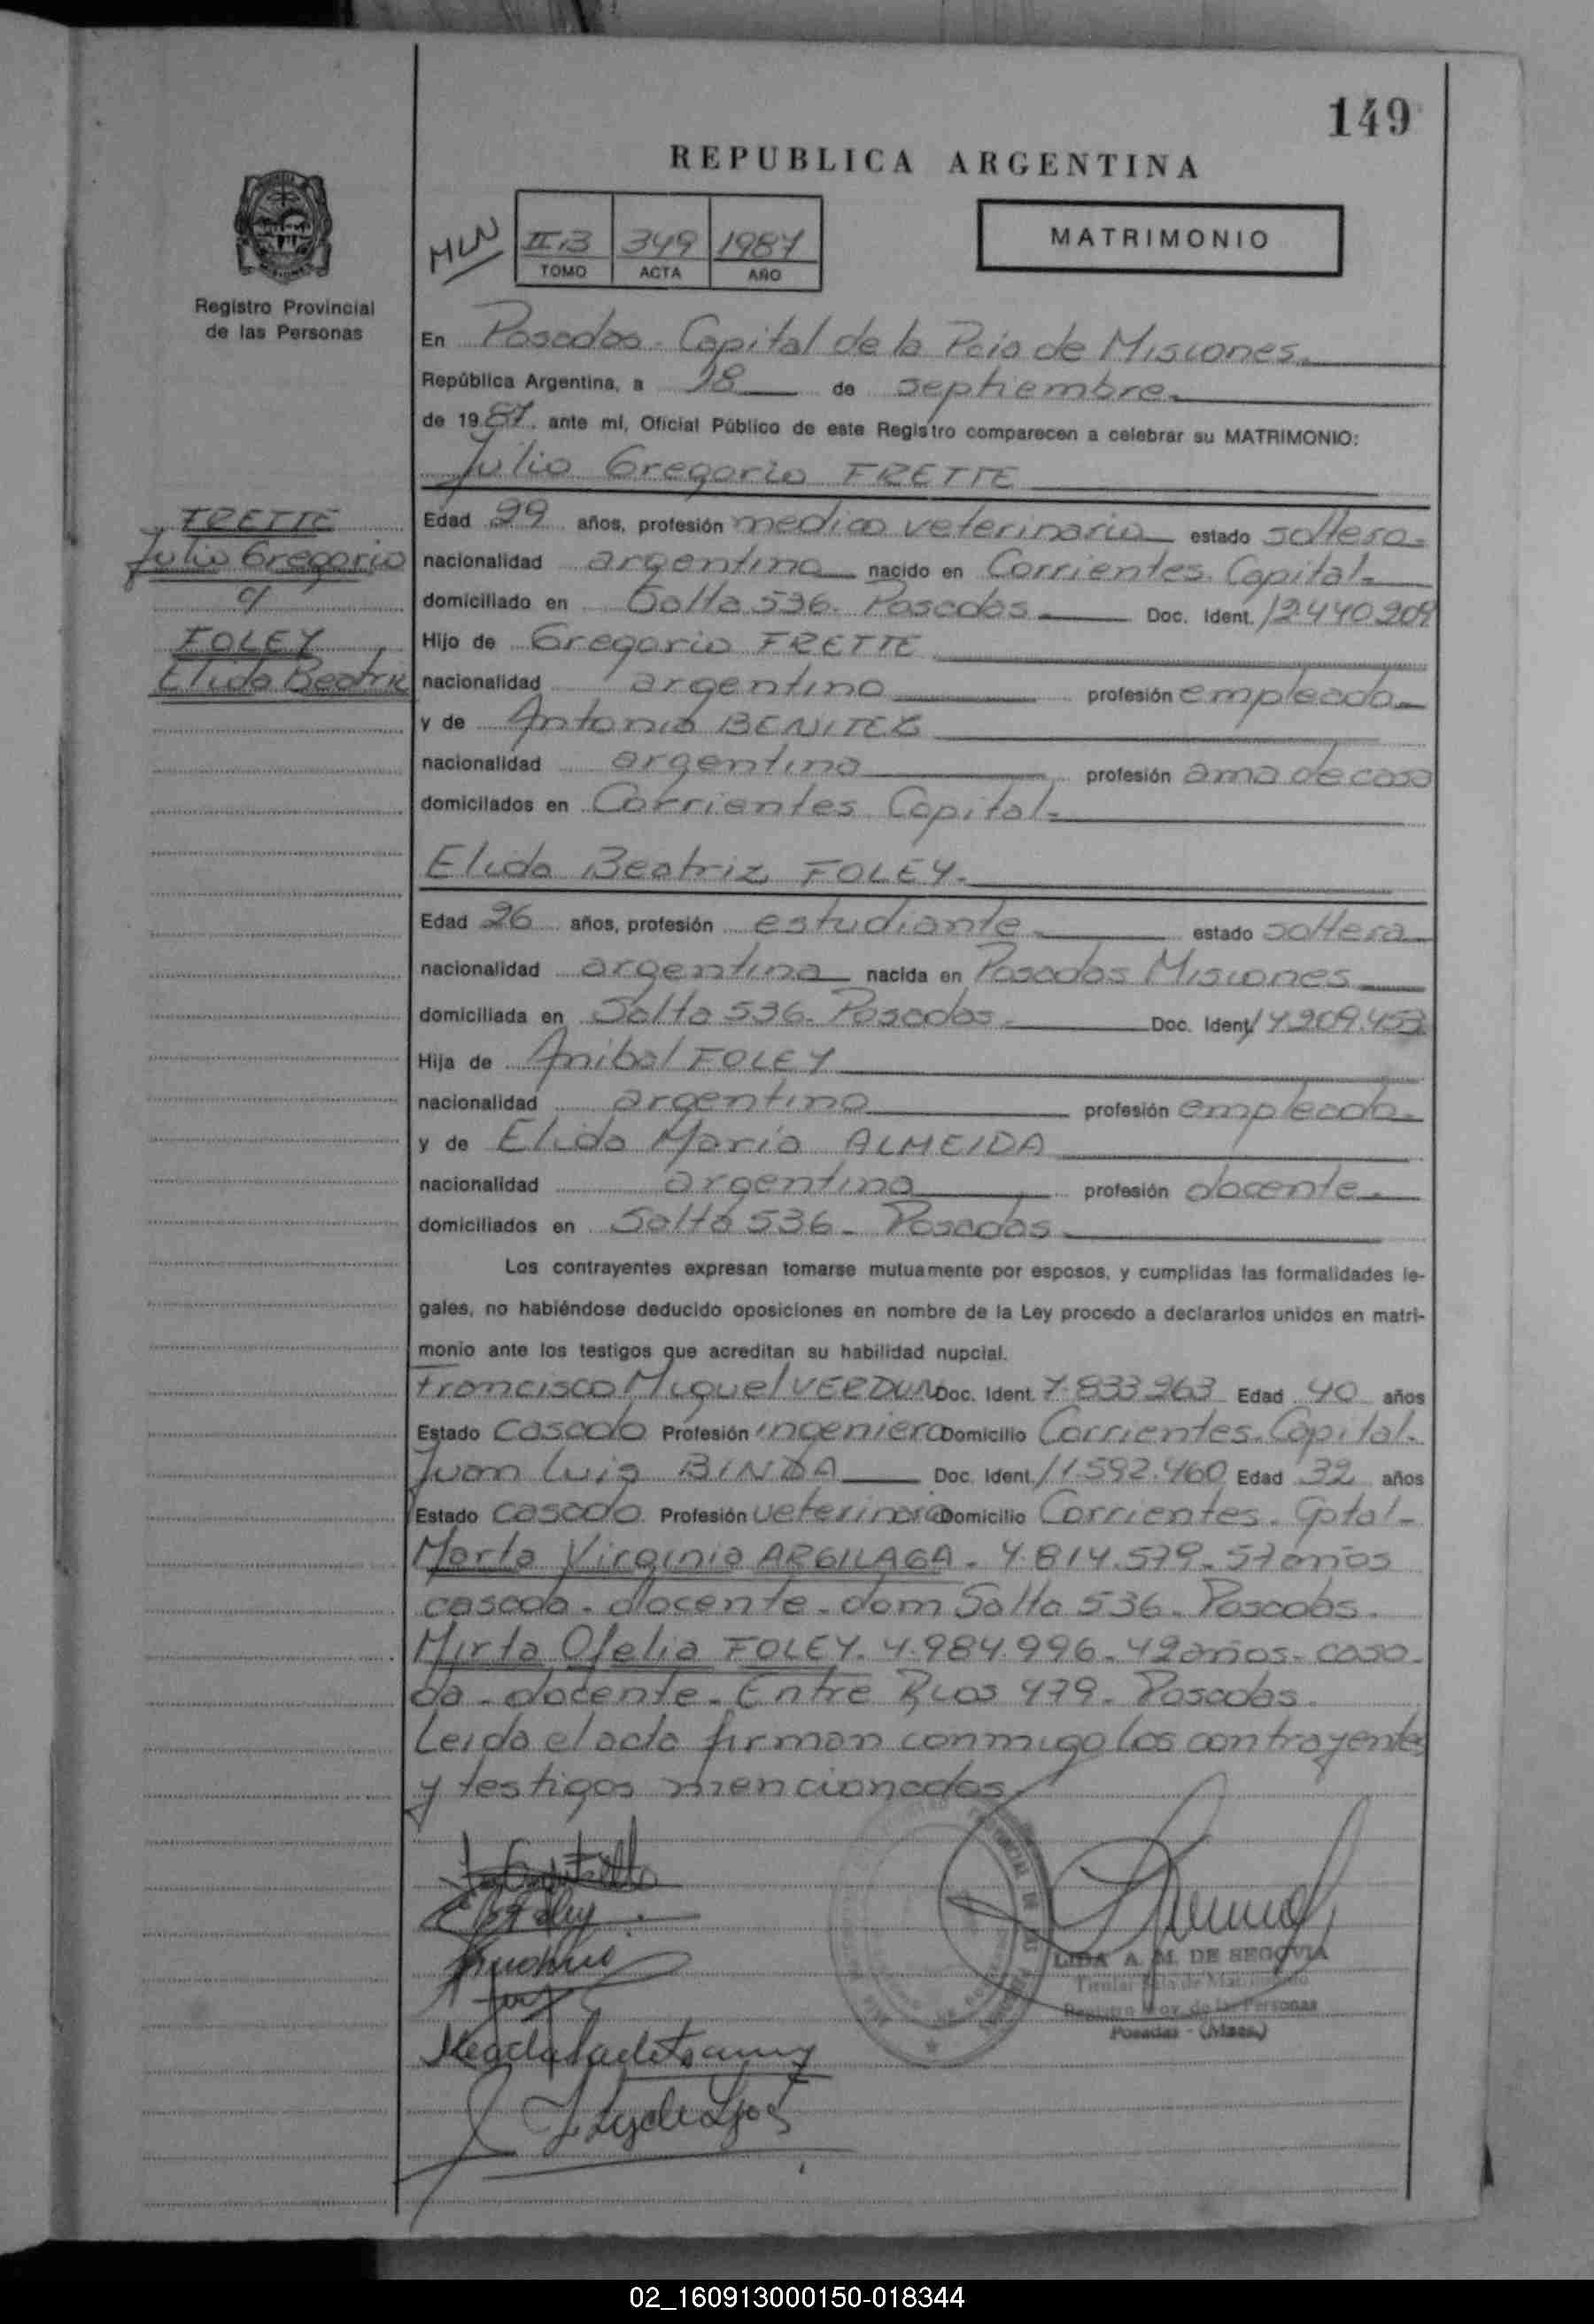 149
REPUBLICA ARGENTINA
MLN
II.B 349 1987
TOMO ACTA AÑO
MATRIMONIO
Registro Provincial
de las Personas
En Posadas - Capital de la Pcia de Misiones
República Argentina, a 18 de septiembre
de 1987. ante mí, Oficial Público de este Registro comparecen a celebrar su MATRIMONIO:
Julio Gregorio FRETTE
FRETTE
Julio Gregorio
c/
FOLEY
Elida Beatriz
Edad 29 años, profesión medico veterinario estado soltero-
nacionalidad argentino nacido en Corrientes. Capital-
domiciliado en Salta 536. Posadas Doc. Ident. 12.440.209
Hijo de Gregorio FRETTE
nacionalidad argentino profesión empleado
y de Antonia BENITEZ
nacionalidad argentina profesión ama de casa
domicilados en Corrientes Capital-
Elida Beatriz FOLEY-
Edad 26 años, profesión estudiante estado soltera
nacionalidad argentina nacida en Posadas Misiones
domiciliada en Salta 536- Posadas Doc. Ident. 14.209.453
Hija de Anibal FOLEY
nacionalidad argentino profesión empleado-
y de Elida María ALMEIDA
nacionalidad argentina profesión docente-
domiciliados en Salta 536 - Posadas
Los contrayentes expresan tomarse mutuamente por esposos, y cumplidas las formalidades le-
gales, no habiéndose deducido oposiciones en nombre de la Ley procedo a declararlos unidos en matri-
monio ante los testigos que acreditan su habilidad nupcial.
Francisco Miguel VERDUN Doc. Ident. 7.833.263 Edad 40 años
Estado casado Profesión ingeniero Domicilio Corrientes. Capital-
Juan Luis BINDA Doc. Ident. 11.592.460 Edad 32 años
Estado casado Profesión veterinario Domicilio Corrientes. Cptal-
Marta Virginia ARGILAGA. 4.814.579. 57 años
casada. docente. dom Salta 536. Posadas.
Mirta Ofelia FOLEY. 4.984.996. 42 años- casa-
da - docente. Entre Rios 479. Posadas.
Leida el acta firman conmigo los contrayentes
y testigos mencionados
LIDA A. M. DE SEGOVIA
Registro Prov. de las Personas
Posadas - (Mnes.)
02_160913000150-018344